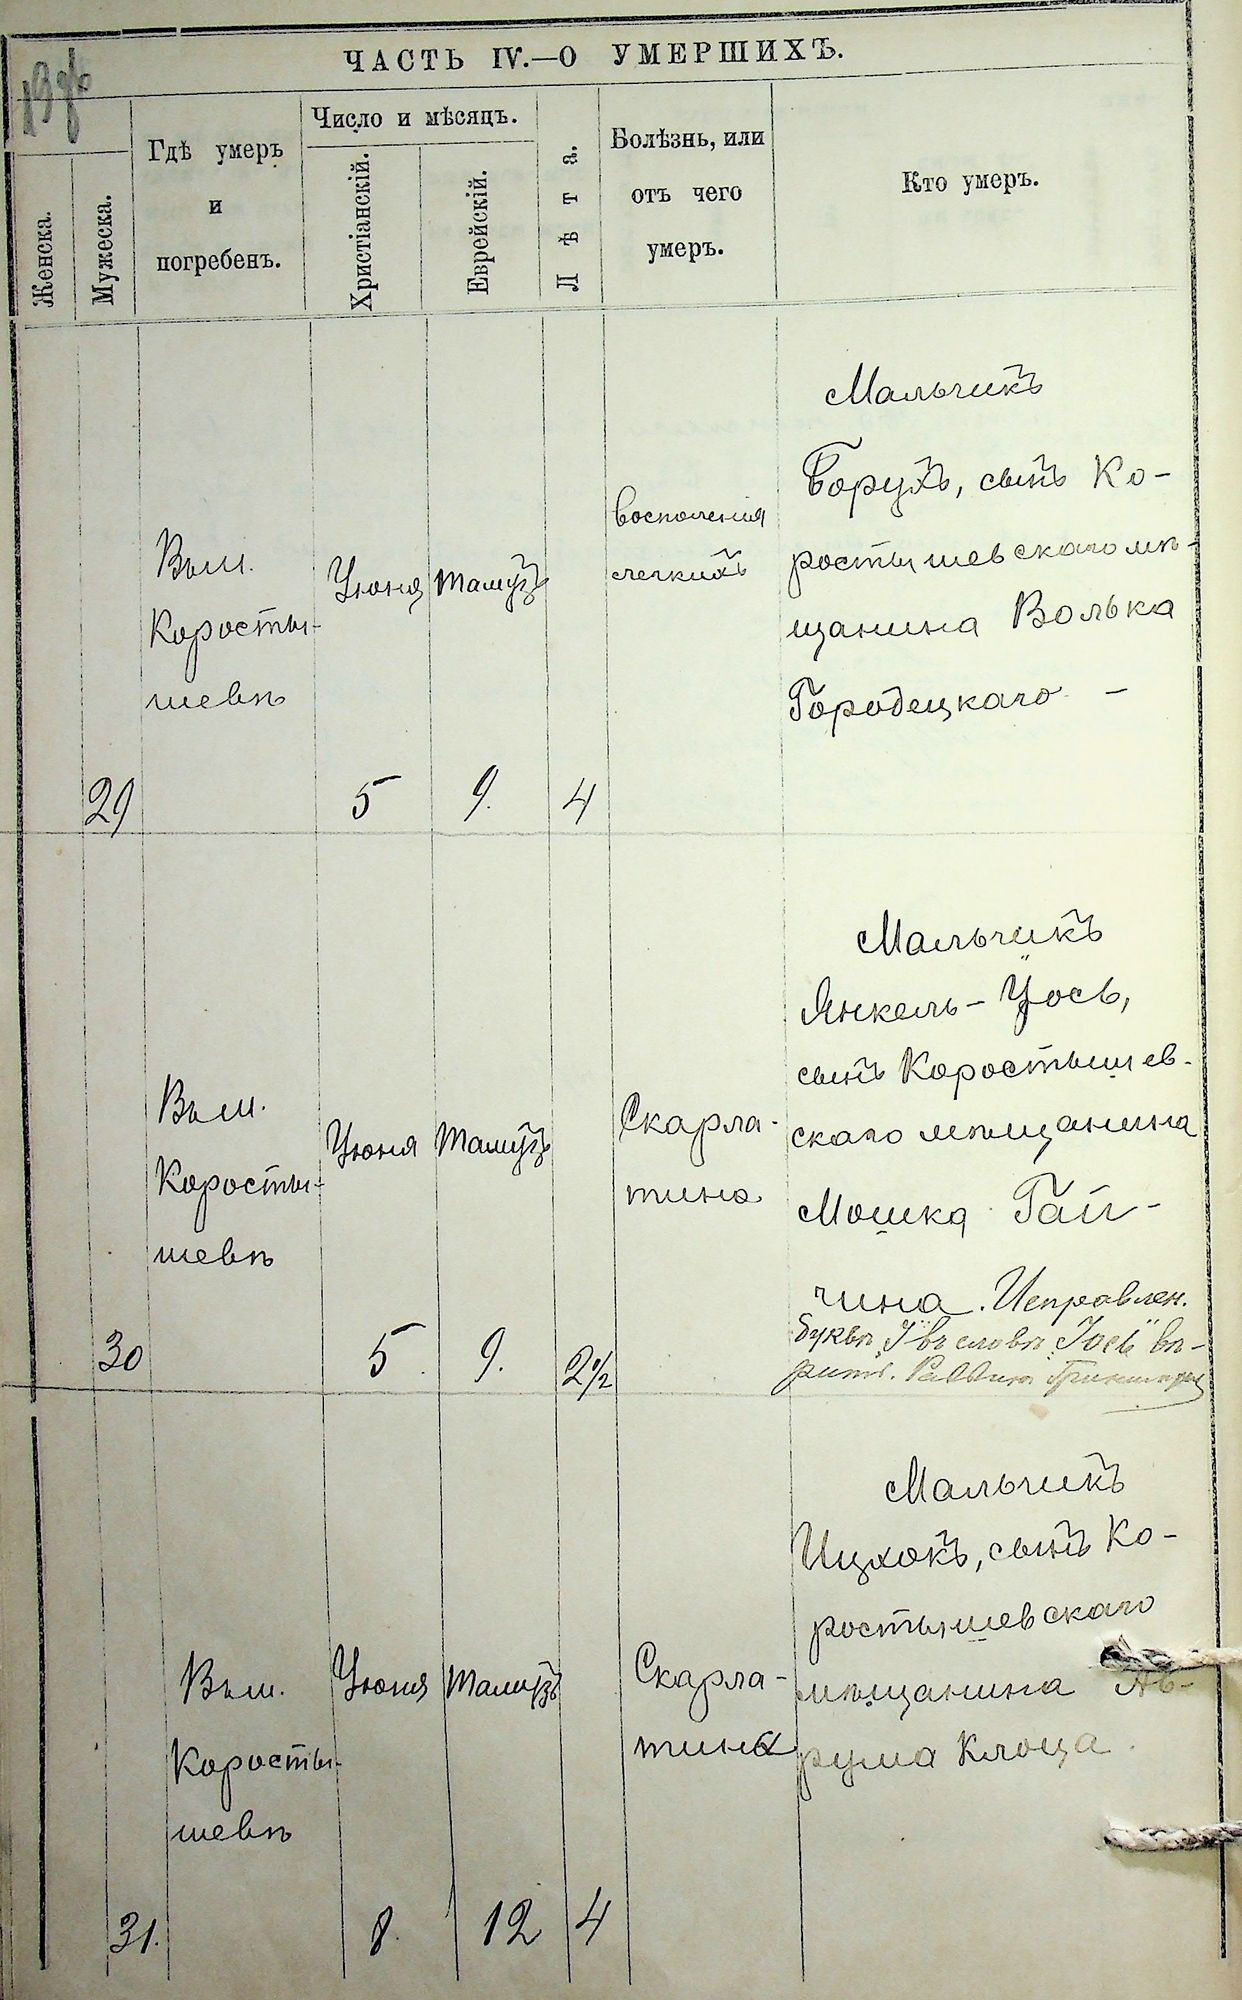 ЧАСТЬ IV.—О УМЕРШИХЪ.
Женска.
Мужеска.
Гдѣ умеръ
и
погребенъ.
Число и мѣсяцъ.
Христіанскій.
Еврейскій.
Лѣта.
Болѣзнь, или
отъ чего
умеръ.
Кто умеръ.
29
Въ м.
Коросты-
шевѣ
Іюня
5
Тамузъ
9.
4
восполенія
легкихъ
Мальчикъ
Борухъ, сынъ Ко-
ростышевскаго мѣ-
щанина Волька
Городецкаго –
30
Въ м.
Коросты-
шевѣ
Іюня
5
Тамузъ
9.
2½
Скарла-
тина
Мальчикъ
Янкель-Іось,
сынъ Коростышев-
скаго мѣщанина
Мошка Гай-
чина. Исправлен.
буква „І" въ словѣ „Іось" вѣ-
рить. Раввинъ
31.
Въ м.
Коросты-
шевѣ
Іюня
8.
Тамузъ
12
4
Скарла-
тина
Мальчикъ
Ицхокъ, сынъ Ко-
ростышевскаго
мѣщанина Ав-
рума Клоца.